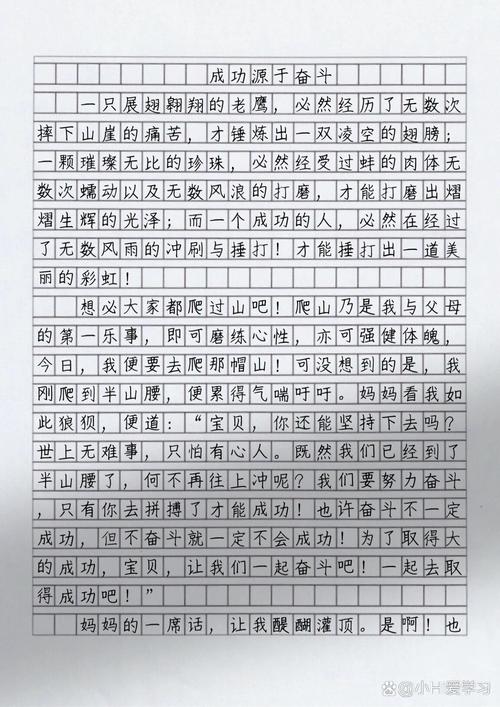 成功源于奋斗
一只展翅翱翔的老鹰，必然经历了无数次
摔下山崖的痛苦，才锤炼出一双凌空的翅膀；
一颗璀璨无比的珍珠，必然经受过蚌的肉体无
数次蠕动以及无数风浪的打磨，才能打磨出熠
熠生辉的光泽；而一个成功的人，必然在经过
了无数风雨的冲刷与捶打！才能捶打出一道美
丽的彩虹！
想必大家都爬过山吧！爬山乃是我与父母
的第一乐事，即可磨练心性，亦可强健体魄，
今日，我便要去爬那帽山！可没想到的是，我
刚爬到半山腰，便累得气喘吁吁。妈妈看我如
此狼狈，便道：“宝贝，你还能坚持下去吗？
世上无难事，只怕有心人。既然我们已经到了
半山腰了，何不再往上冲呢？我们要努力奋斗
，只有你去拼搏了才能成功！也许奋斗不一定
成功，但不奋斗就一定不会成功！为了取得大
的成功，宝贝，让我们一起奋斗吧！一起去取
得成功吧！”
妈妈的一席话，让我醍醐灌顶。是啊！也